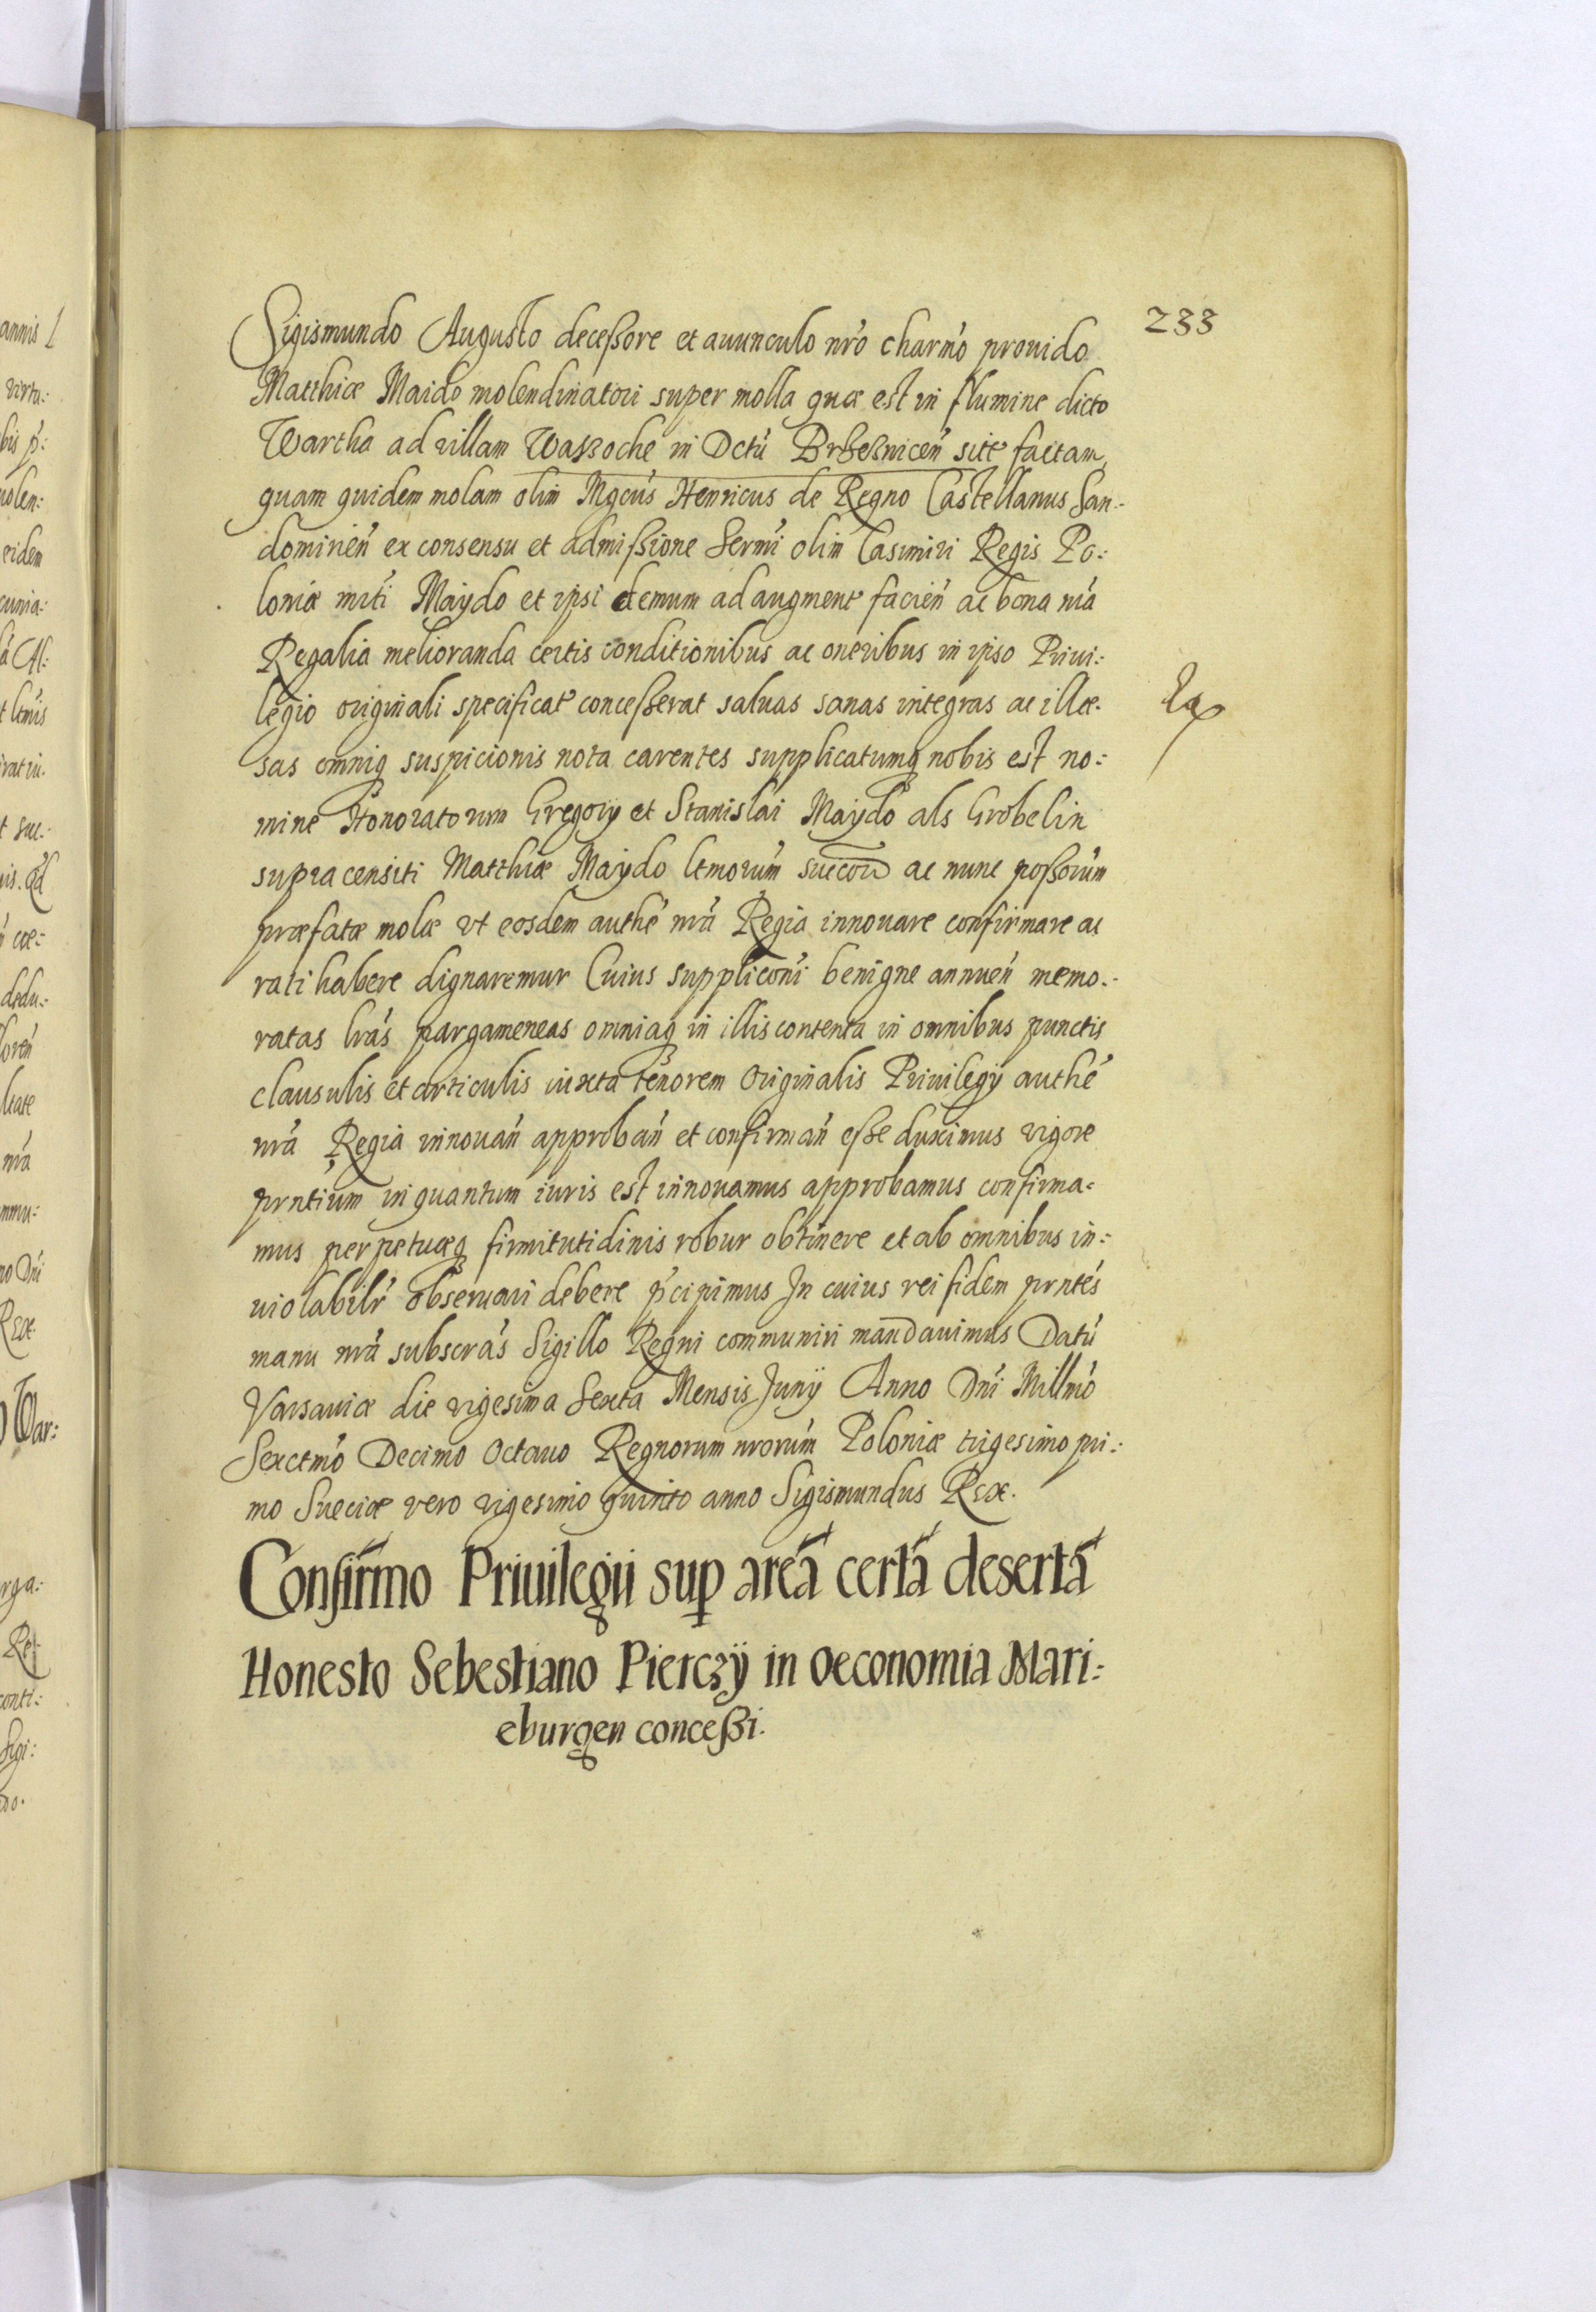 233
Sigismundo Augusto deceßore et auunculo nr̃o charm̃o prouido
Matthiæ Maido molendinatori super molla quæ est in flumine dicto
Wartha ad villam Waszoche in Dctũ Brzeszniceñ sitt factam,
quam quidem molam olim Mgcũs Henricus de Regno Castellanus San-
domirieñ ex consensu et admißione Serm̃i olim Casimiri Regis Po:
loniæ m̃rti Maÿdo et ipsi demum ad augment facieñ ac bona nr̃a
Regalia melioranda certis conditionibus ac oneribus in ipso Priui:
legio originali specificat conceßerat saluas sanas integras ac illæ-
sas omniq suspicionis nota carentes supplicatumq nobis est no:
mine Honoratorum Gregorÿ et Stanislai Maÿdo als Grobelin
supra censiti Matthiæ Maÿdo ltmorũm succoũ ac nunc poßorũm
præfatæ molæ vt eosdem authẽ nr̃a Regia innouare confirmare ac
rati habere dignaremur Cuius supplicoñi benigne annueñ memo-
ratas lr̃as pargameneas omniaq in illis contenta in omnibus punctis
clausulis et articulis iuxta tenorem Originalis Priuilegÿ authẽ
nr̃a Regia innouañ approbañ et confirmañ eße duximus vigore
prñtium in quantum iuris est innouamus approbamus confirma-
mus perpetuæq firmitutidinis robur obtinere et ab omnibus in:
uiolabilr̃ obseruari debere p̃cipimus In cuius rei fidem prñtes
manu nr̃a subscrãs Sigillo Regni communiri mandauimus Datũ
Varsauiæ die vigesima Sexta Mensis Junÿ Anno Dñi Millmõ
Sexctmõ Decimo Octauo Regnorum nrorũm Poloniæ trigesimo pri:
mo Sueciæ vero vigesimo quinto anno Sigismundus Rex.
Confirm̃o Priuilegii sup areã certã desertã
Honesto Sebestiano Pierczÿ in Oeconomia Mari:
eburgen conceßi.